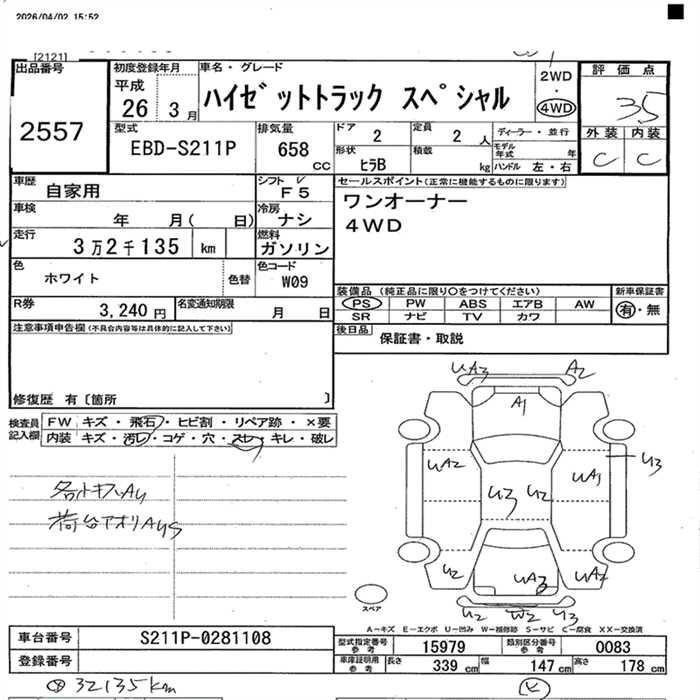 2026/04/02 15:52
[2121]
出品番号
2557
初度登録年月
平成
26 3月
車名・グレード
ハイゼットトラック スペシャル
2WD
・
4WD
評価点
3.5
外装 内装
C C
型式
EBD-S211P
排気量
658
CC
ドア
2
定員
2人
ディーラー・並行
形状
ヒラB
積載
kg
モデル年式 年
ハンドル 左・右
車歴
自家用
シフト
F5
セールスポイント(正常に機能するものに限ります)
ワンオーナー
4WD
車検
年 月( 日)
冷房
ナシ
走行
3万2千135 km
燃料
ガソリン
色
ホワイト
色替
色コード
W09
装備品(純正品に限り○をつけてください)
新車保証書
PS PW ABS エアB AW
SR ナビ TV カワ
有・無
R券
3,240円
名変通知期限
月 日
後日品
保証書・取説
注意事項申告欄(不具合内容等は具体的に記入して下さい)
修復歴 有〔箇所 〕
検査員
記入欄
FW キズ・飛石・ヒビ割・リペア跡・×要
内装 キズ・汚レ・コゲ・穴・スレ・キレ・破レ
荷台アオリAUS
UA3 A2
A1
UA2 UA1 U3
U3 U2
U2 UA3 UA2
U2 W2 U3
スペア
A-キズ E-エクボ U-凹み W-補修跡 S-サビ C-腐食 XX-交換済
車台番号
S211P-0281108
登録番号
型式指定番号
参考
15979
類別区分番号
参考
0083
車庫証明用
参考
長さ 339 cm 幅 147 cm 高さ 178 cm
32135km